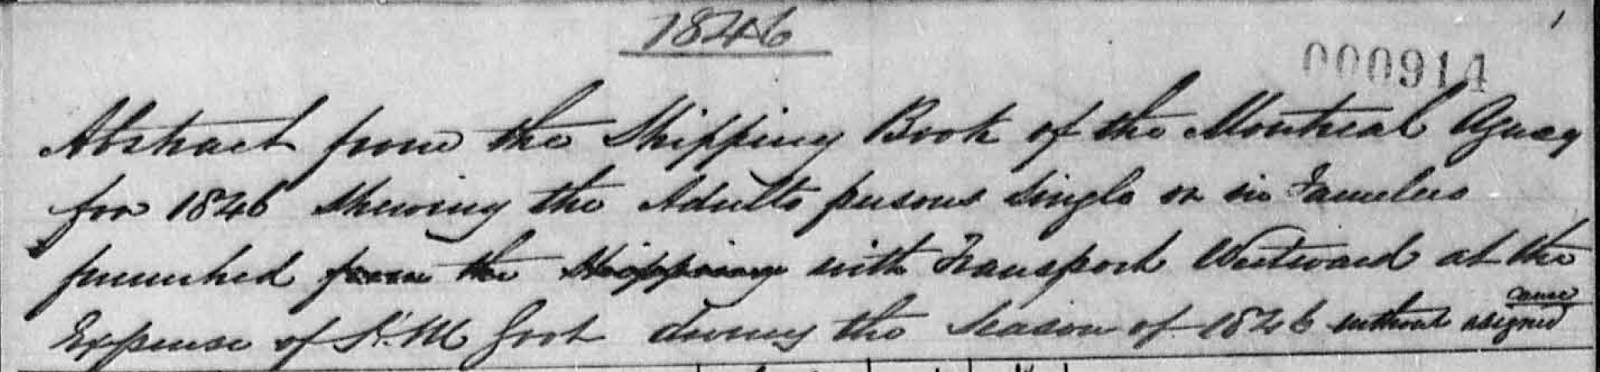 1846
000914
Abstract from the Shipping Book of the Montreal Agency
for 1846 shewing the Adults persons Single or in Families
furnished from the Shipping with Transport Westward at the
Expense of H. M. Govt during the Season of 1846 without asigned
cause